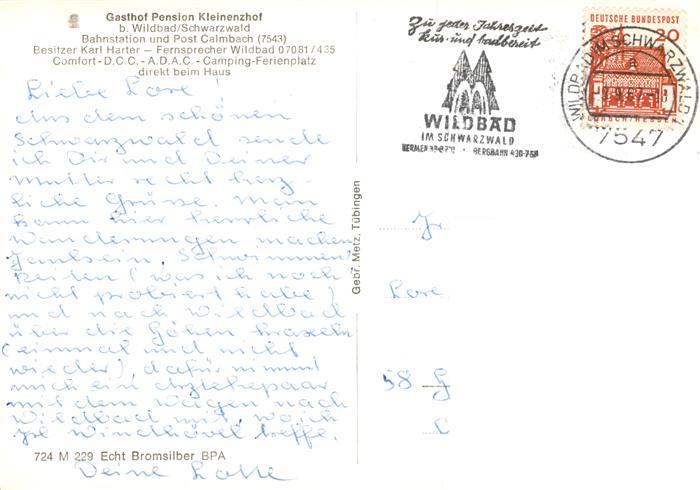 Gasthof Pension Kleinenzhof
b. Wildbad/Schwarzwald
Bahnstation und Post Calmbach (7543)
Besitzer Karl Harter – Fernsprecher Wildbad 07081/435
Comfort - D.C.C. - A.D.A.C. - Camping-Ferienplatz
direkt beim Haus
Liebe Lore!
Aus dem schönen
Schwarzwald sende
ich Dir und Deiner
Mutter recht herz-
liche Grüsse. Man
kann hier herrliche
Wanderungen machen
Faulsein, Schwimmen
Reiten (was ich noch
nicht probiert habe)
und nach Wildbad
über die Höhen kraxeln
(einmal und nicht
wieder), dafür nimmt
mich ein Arztehepaar
mit dem Wagen nach
Wildbad mit, wo ich
Windhövel treffe.
Deine Lotte
724 M 229 Echt Bromsilber BPA
Gebr. Metz, Tübingen
Zu jeder Jahreszeit
kur- und badbereit
WILDBAD
IM SCHWARZWALD
THERMEN 33-37°C · BERGBAHN 430-750
DEUTSCHE BUNDESPOST
20
WILDBAD IM SCHWARZWALD
a
7547
Fr.
Lore
58 G